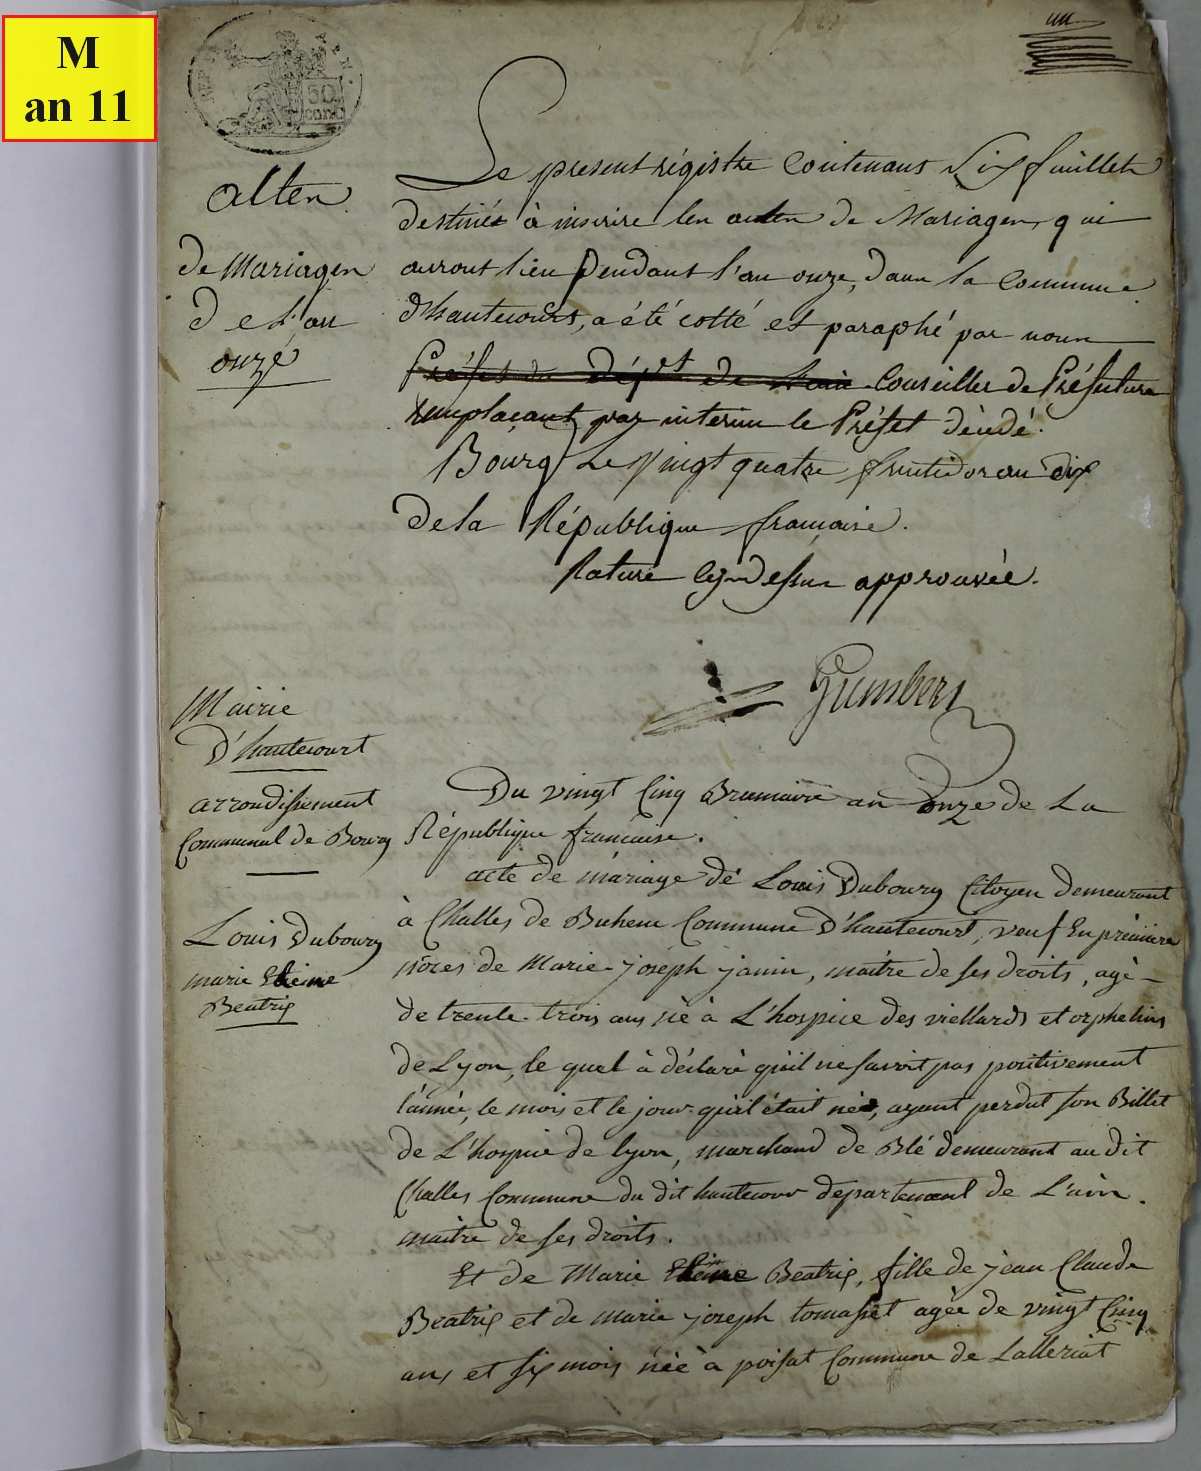 M
an 11
un
50
cent
actes
de Mariages
de L'an
onze
Le present régistre Contenant Six feuillets
destiné à inscrire les actes de Mariages, qui
auront lieu pendant l'an onze, dans la Commune
d'hautecourt, a été cotté et paraphé par nous
Préfet du Dépt de l'ain Conseiller de Préfecture
remplaçant par interim le Préfet décédé.
Bourg Le Vingt quatre fructidor an dix
de la République française.
Rature cy-dessus approuvée.
Mairie
D'hautecourt
arrondissement
Communal de Bourg
Du vingt Cinq Brumaire an onze de La
République française.
acte de mariage de Louis Dubourg Citoyen demeurant
Louis Dubourg
marie
Beatrix
à Challes de Commune D'hautecourt, veuf En première
nôces de Marie-joseph janin, maitre de ses droits, agé
de trente-trois ans né à L'hospice des viellards et orphelins
de Lyon, le quel à déclaré qu'il ne savoit pas positivement
l'année, le mois et le jour qu'il était né, ayant perdut son Billet
de L'hospice de lyon, marchand de Blé demeurant au dit
Challes Commune du dit hautecour département de L'ain.
maitre de ses droits.
Et de Marie Beatrix, fille de jean Claude
Beatrix et de marie joseph tomasset agée de vingt Cinq
ans et six mois née à poisat Commune de Lalleriat